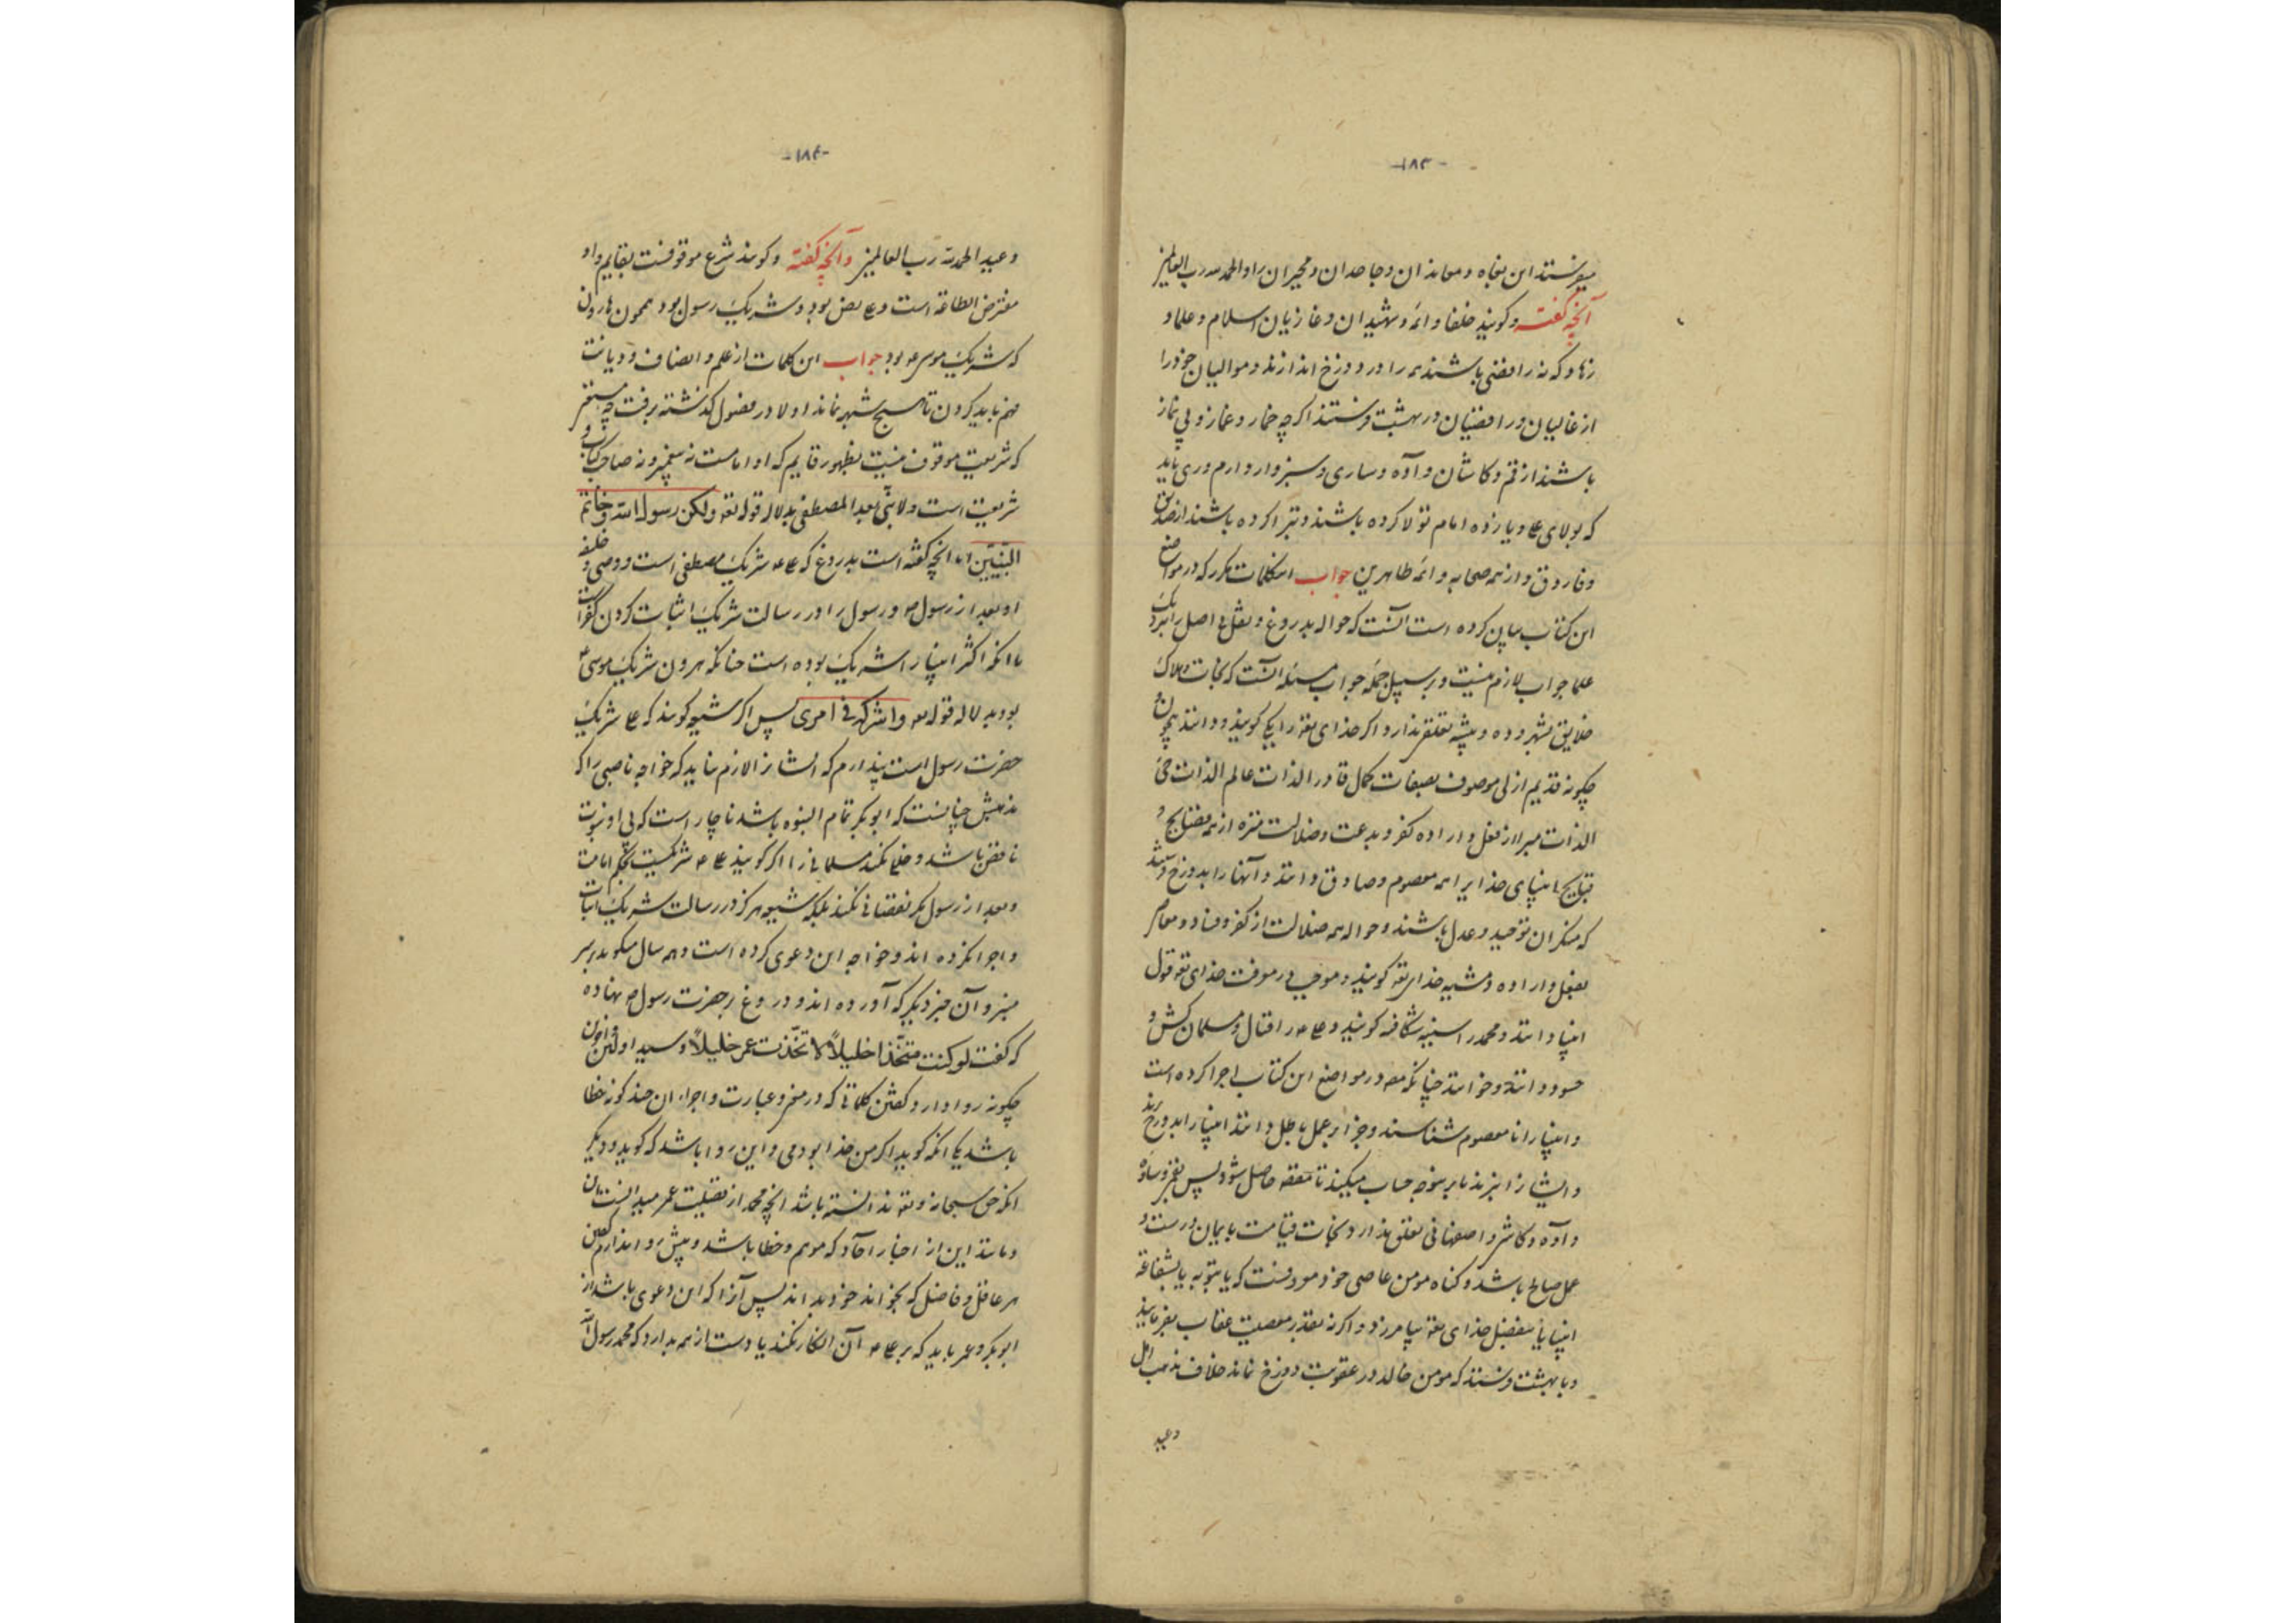 -۱۸۳-
میفرستند این بغاه و معاندان و جاحدان و مجبران را و الحمدلله رب العالمین
آنچه گفته و گویند خلفا و ائمه و شهیدان و غازیان اسلام و علما و
زهاد که نه رافضی باشند همه را در دوزخ اندازند و موالیان خود را
از غالیان و رافضیان در بهشت فرستند اگر چه خمار و غماز و بی نماز
باشند از قم و کاشان و آوه و ساری و سبزوار و ارم و ری باید
که بولای علی و یازده امام تولا کرده باشند و تبرا کرده باشند از صدیق
و فاروق و از همه صحابه و ائمه طاهرین جواب این کلمات مکرر که در مواضع
این کتاب بیان کرده است آنست که حواله بدروغ و نقل با اصل را بنزدیک
علما جواب لازم نیست و بر سبیل جمله جواب مسئله آنست که نجات و هلاک
خلایق بشهر و ده و پیشه تعلق ندارد اگر خدای تعه را یکی گویند و دانند بیچون و
چگونه قدیم ازلی موصوف بصفات کمل قادر الذات عالم الذات حی
الذات مبرا از فعل و اراده کفر و بدعت و ضلالت منزه از همه فضایح و
قبایح انبیای خدایرا همه معصوم و صادق دانند و آنها را بدوزخ فرستد
که منکران توحید و عدل باشند و حواله همه ضلالت از کفر و فساد و معاصی
بفعل و اراده و مشیه خدای تعه گویند و موجب در معرفت خدای تعه قول
انبیا دانند و محمد را سینه شکافته گویند و علی را قتال و مسلمان کش و
حسود دانند و خوانند چنانکه مصه در مواضع این کتاب اجرا کرده است
و انبیا را نا معصوم شناسند و جزا بر عمل باطل دانند انبیا را بدوزخ برند
و ایشان را نیز بدنابر بنوجه حساب میکنند تا تفقه حاصل شود پس بقم و ساوه
و آوه و کاشی و اصفهانی تعلق ندارد نجات قیامت بایمان درست و
عمل صالح باشد و گناه مومن عاصی خود موقوفست که یا بتوبه یا بشفاعة
انبیا یا بفضل خدای تعه بیامرزد و اگر نه بقدر معصیت عقاب بفرماید
و با بهشت فرستد که مومن خالد در عقوبت دوزخ نماند خلاف مذهب اهل
وعید
-۱۸۴-
وعید الحمدلله رب العالمین و آنچه گفته و گویند شرع موقوفست بقایم و او
مفترض الطاعة است و علی بعض بود و شریک رسول بود همچون هارون
که شریک موسی بود جواب این کلمات از علم و انصاف و دیانت
فهم باید کردن تا هیچ شبهه نماند اولا در فصول گذشته برفت چه مستمر
که شریعت موقوف نیست بظهور قایم که او امامست نه پیغمبر و نه صاحب کتاب و
شریعت است و لا نبی بعد المصطفی بدلاله قوله تعه ولکن رسول الله و خاتم
النبیین اما آنچه گفته است بدروغ که علی شریک مصطفی است و وصی و خلیفه
او بعد از رسول و رسول را در رسالت شریک اثبات کردن کفر است
با آنکه اکثر انبیا را شریک بوده است چنانکه هرون شریک موسی
بود بدلاله قوله تعه و اشرکه فی امری پس اگر شیعه گویند که علی شریک
حضرت رسول است پندارم که ایشان را لازم نیاید که خواجه ناصبی را که
مذهبش چنانست که ابوبکر تمام النبوه باشد ناچار است که بی او نبوت
ناقص باشد و خللی نکند مسلمانی را اگر گویند علی شریکست بحکم امامت
و بعد از رسول مکر نقصانی نکند بلکه شیعه هرگز در رسالت شریک اثبات
و اجرا نکرده اند و خواجه این دعوی کرده است و همه سال میگوید بر سر
منبر و آن خبر دیگر که آورده اند و دروغ بر حضرت رسول نهاده
که گفت لو کنت متخذا خلیلاً لا تخذت عمر خلیلاً و سید اولین و آخرین
چگونه روا دارد گفتن کلماتی که در منبر و عبارت و اجراء ان چند گونه خطا
باشد یکی انکه گوید اگر من خدا بودمی و این روا باشد که گوید و دیگر
انکه حق سبحانه و تعه ندانسته باشد آنچه محمد از فضیلت عمر میدانست
و مانند این از اخبار احاد که موهم و خطا باشد و پیش رو اندارم گفتن
هر عاقل و فاضل که بخواند خود بداند پس آنرا که این دعوی باشد از
ابوبکر و عمر باید که بر علی آن انکار نکند یا دست از همه بدارد که محمد رسول الله